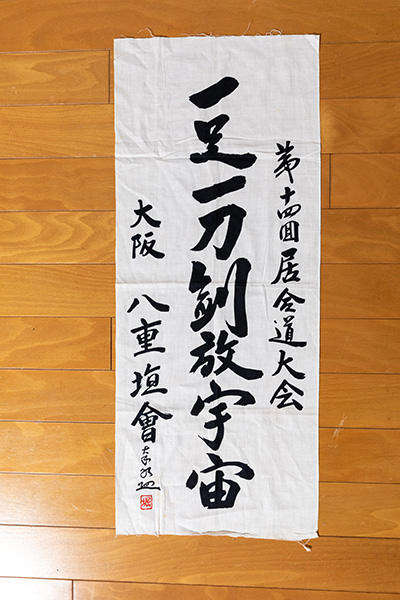 第十四回居合道大会
一足一刀剣放宇宙
大阪 八重垣會